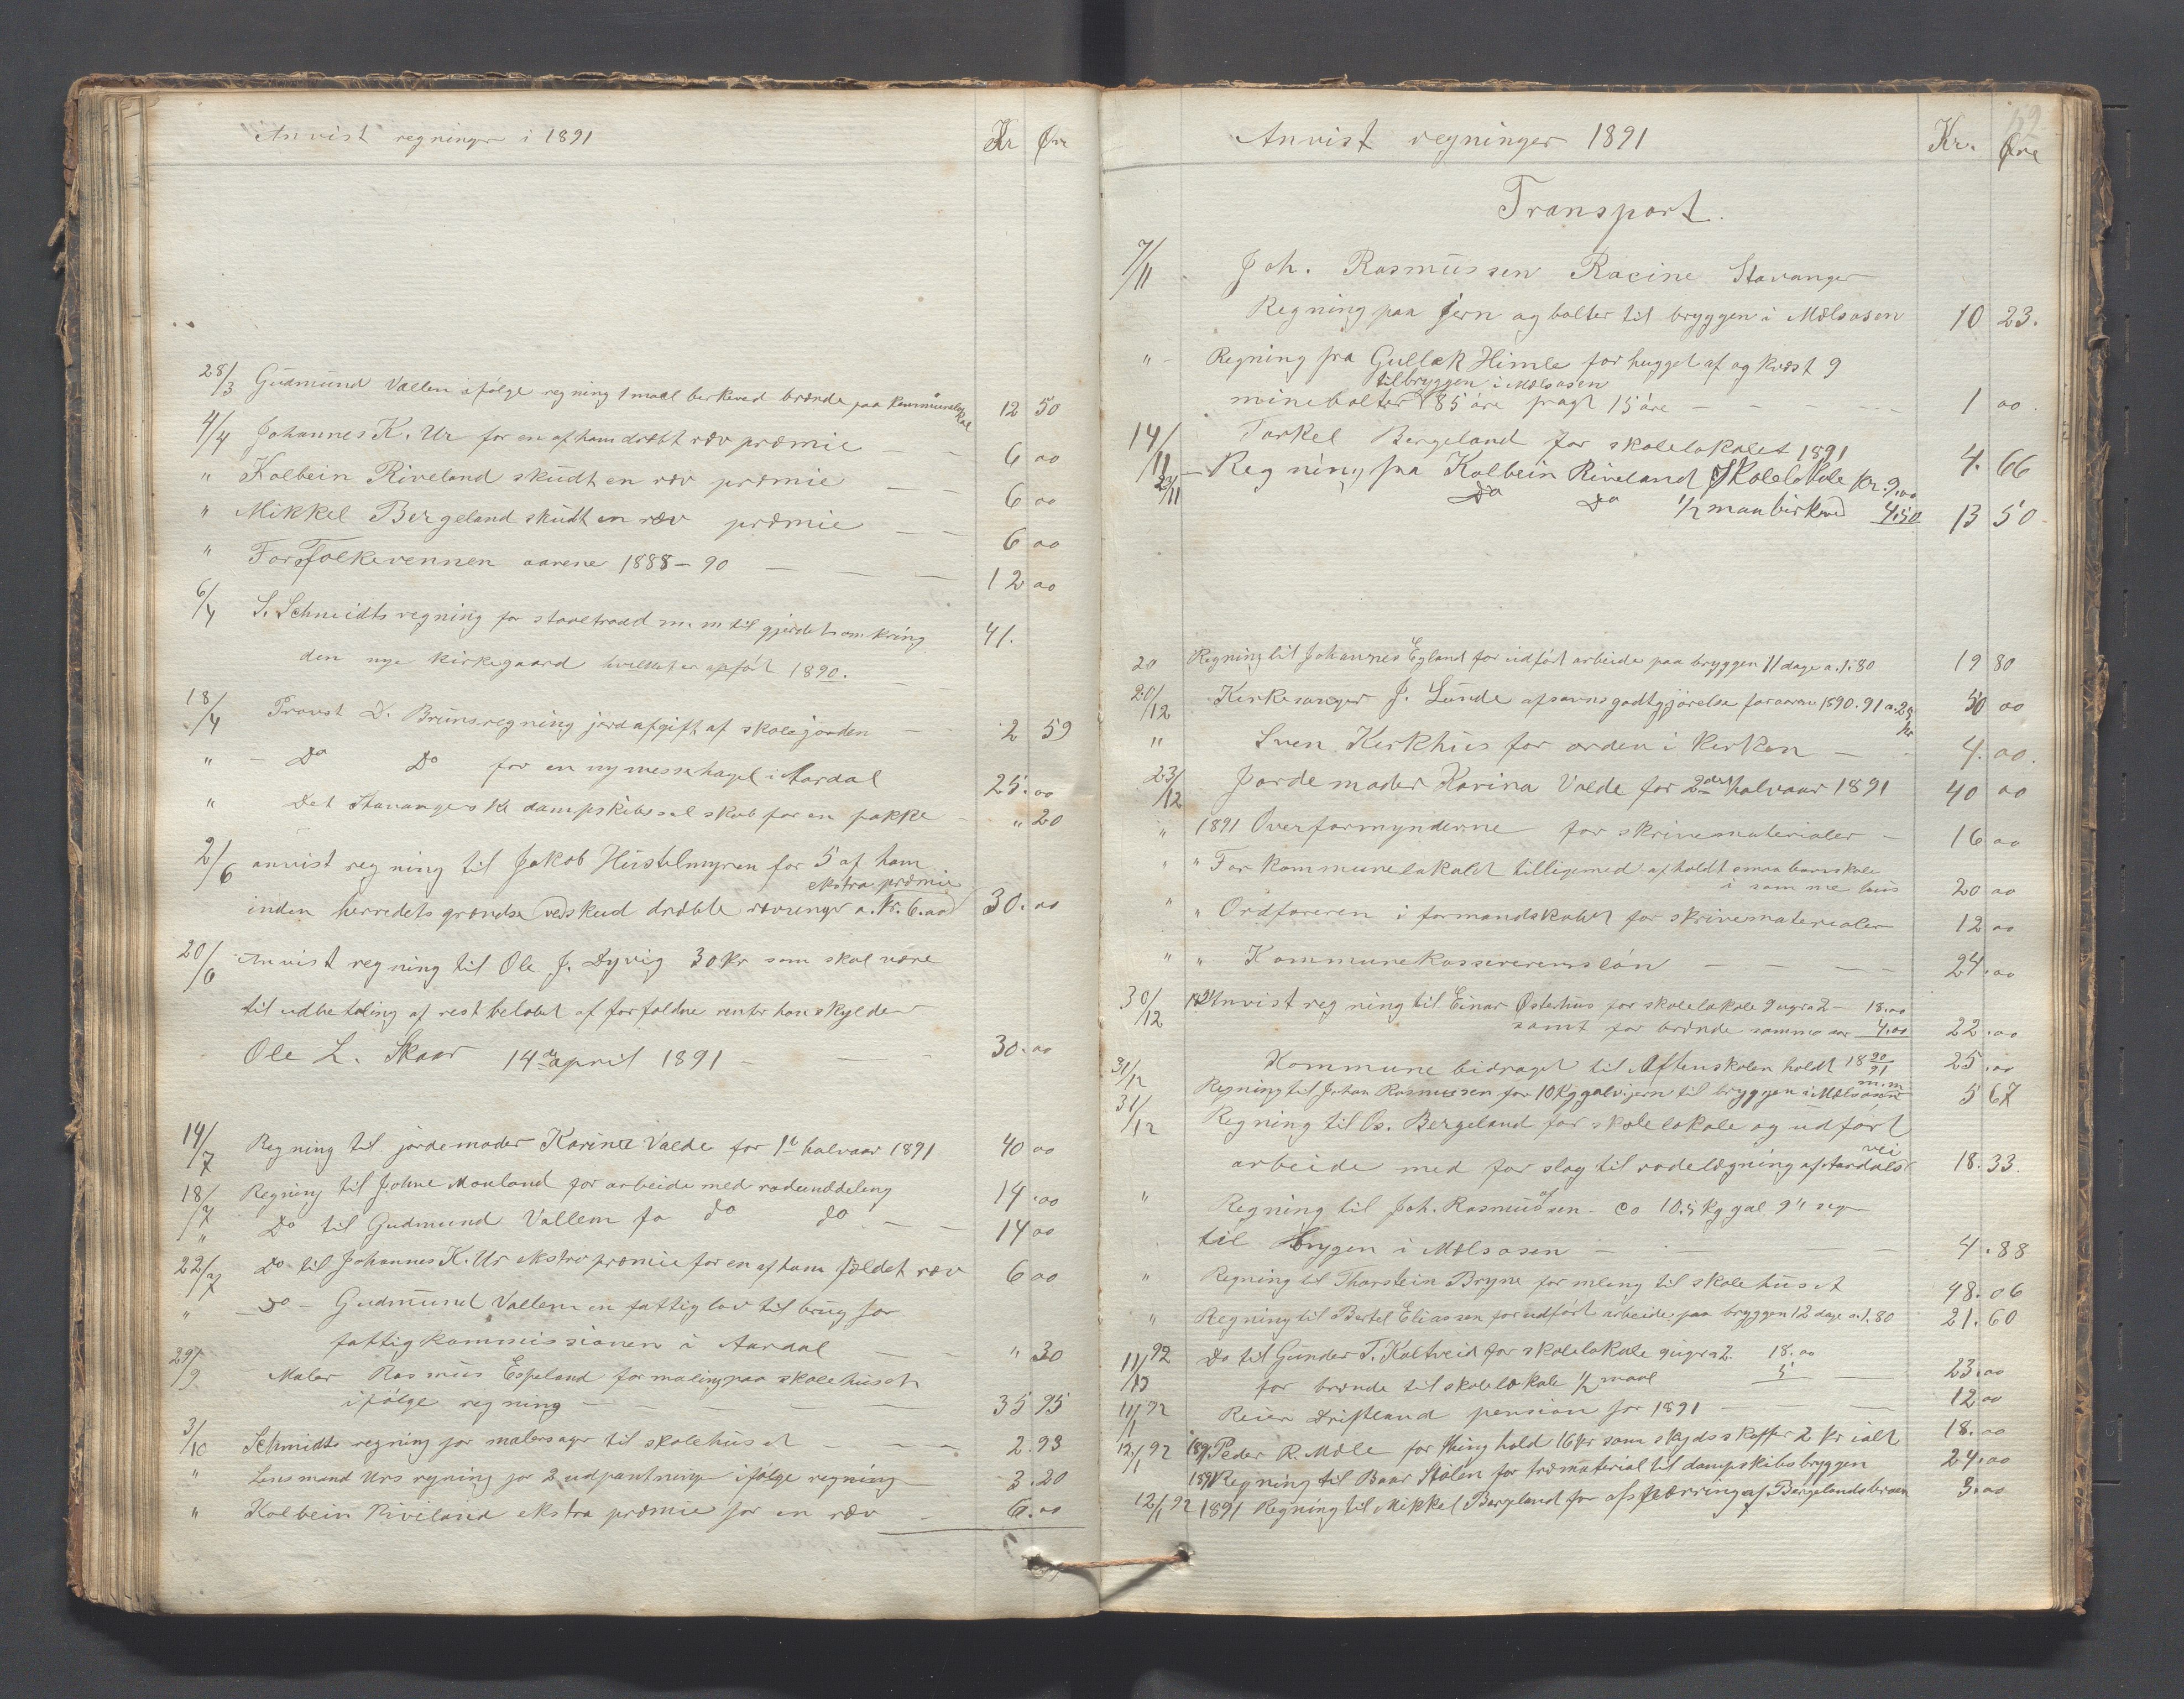 Anvist regninger i 1891 Kr Øre
28/3 Gudmund Vallem ifølge regning 1 maal birkeved brænde paa kommunelokal 12 50
4/4 Johannes K. Ur for en af ham dræbt ræv præmie — — 6 00
" Kolbein Riveland skudt en ræv præmie — — 6 00
" Mikkel Bergeland skudt en ræv præmie — — 6 00
" For Folkevennen aarene 1888–90 — — — 12 00
6/4 S. Schmidts regning for staaltraad m.m til gjerdet omkring 41.
den nye kirkegaard hvilket er opført 1890. — —
18/4 Provst D. Bruns regning jordafgift af skolejorden — — 2 59
" — Do Do for en ny messehagel i Aardal 25. 00
" Det Stavangerske dampskibsselskab for en pakke — " 20
2/6 anvist regning til Jakob Hustelmyren for 5 af ham
ekstra præmie
inden herredets grændse ved skud dræbte rævunger a. kr. 6.00 30. 00
20/6 Anvist regning til Ole J. Dyvig 30 kr som skal være
til udbetaling af restbeløbet af forfaldne renter han skylder
Ole L. Skaar 14de april 1891 — — — 30. 00
14/7 Regning til jordemoder Karina Valde for 1te halvaar 1891 40 00
18/7 Regning til Johne Mauland for arbeide med rodeinddeling 14. 00
" Do til Gudmund Vallem fo do do — — 14 00
22/7 Do til Johannes K. Ur ekstrapræmie for en af ham fældet ræv 6 00
" — Do — Gudmund Vallem en fattiglov til brug for
fattigkommissionen i Aardal — — " 30
29/9 Maler Rasmus Espeland for maling paa skolehuset
ifølge regning — — — — — 35 95
3/10 Schmidts regning for malersager til skolehuset — — — 2. 93
" Lensmand Urs regning for 2 udpantninge ifølge regning 3. 20
" Kolbein Riveland ekstra præmie for en ræv — 6. 00
Anvist regninger 1891 Kr. Øre
52
Transport.
7/11 Joh. Rasmussen Racine Stavanger
Regning paa jern og bolter til bryggen i Mælsosen 10 23.
" — Regning fra Gullek Himle for hugget af og kvæst 9
til bryggen i Mælsosen
minebolter 85 øre fragt 15 øre — — — — 1 00.
14/11 Torkel Bergeland for skolelokalet 1891 4. 66
23/11 — Regning fra Kolbein Riveland Skolelokale kr. 9.00
Do Do 1/2 maa birkeved 4.50 13 50.
20 Regning til Johannes Egland for udført arbeide paa bryggen 11 dage a. 1.80 19 80
20/12 Kirkesanger J. Lunde afsavnsgodtgjørelse for aarene 1890. 91 a. 25 kr 50 00
" Sven Kirkhus for orden i kirken — — 4. 00.
23/12 Jordemoder Karina Valde for 2det halvaar 1891 40 00
" 1891 Overformynderne for skrivematerialer — 16 00
" " For kommunelokalet tilligemed afholdt smaabarnskole
i samme hus 20 00
" " Ordføreren i formandskabet for skrivematerialer 12 00
" " Kommunekassererens løn — — — — 24. 00
30/12 1891 Anvist regning til Einar Østerhus for skolelokale 9 uger a 2 — 18.00
samt for brænde samme aar 4.00 22. 00
31/12 Kommune bidraget til Aftenskolen holdt 1890/91 25. 00
31/12 Regning til Johan Rasmussen for 10 kg galv. jern til bryggen i Mælsosen m.m 5 67
Regning til Os. Bergeland for skolelokale og udført
arbeide med forslag til rodelægning af Aardals vei 18. 33.
" Regning til Joh. Rasmussen af ca 10.5 kg gal 9" søm
til Brygen i Mælsosen — — — — 4. 88
" Regning til Thorstein Bryne for mling til skolehuset 48. 06
" Regning til Bertel Eliassen for udført arbeide paa bryggen 12 dage a. 1.80 21. 60
11/1 92 Do til Gunder T. Kaltveid for skolelokale 9 uger a 2. 18. 00
for brænde til skolelokale 1/2 maal 5 — 23. 00
11/1 92 Reier Driftland pension for 1891 — — 12 00
12/1 92 1891 Peder R. Mæle for thinghold 16 kr som skydsskaffer 2 kr ialt 18. 00
1891 Regning til Baar Stølen for træmaterial til dampskibsbryggen 24. 00
12/1 92 1891 Regning til Mikkel Bergeland for afspærring af Bergelandsbroen 3. 00